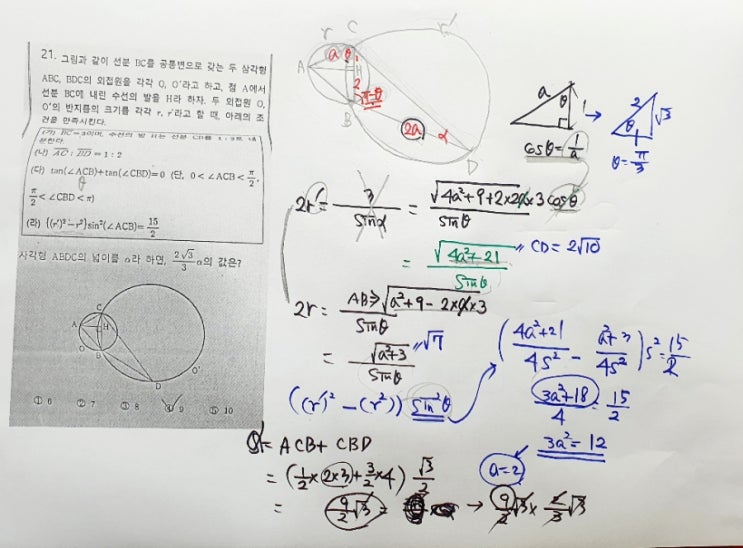 21. 그림과 같이 선분 BC를 공통변으로 갖는 두 삼각형
ABC, BDC의 외접원을 각각 O, O'라고 하고, 점 A에서
선분 BC에 내린 수선의 발을 H라 하자. 두 외접원 O,
O'의 반지름의 크기를 각각 r, r'라고 할 때, 아래의 조
건을 만족시킨다.
(나) AC : BD = 1 : 2
(다) tan(∠ACB)+tan(∠CBD)=0 (단, 0<∠ACB<π/2,
θ
π/2<∠CBD<π)
(라) {(r')²-r²}sin²(∠ACB)=15/2
사각형 ABDC의 넓이를 α라 하면, 2√3/3 α의 값은?
C
A
H
O
B
D
O'
① 6 ② 7 ③ 8 ④ 9 ⑤ 10
r C r'
a θ 1
A H
2
π-θ
B
2a α
D
a θ 1
cosθ = 1/a
2 √3
θ 1
θ = π/3
2r' = 3/sinα = √4a²+9+2×2a×3cosθ / sinθ
= √4a²+21 / sinθ " CD = 2√10
2r = AB⇒√a²+9-2×a×3 / sinθ
= √a²+3 / sinθ "√7
((r')²-(r²)) sin²θ
(4a²+21/4s² - a²+3/4s²)s² = 15/2
3a²+18/4 = 15/2
3a² = 12
a=2
= ACB + CBD
= (1/2×2×3+3/2×4) √3/2
= 9/2√3 = → 9/2√3 × 2/3√3